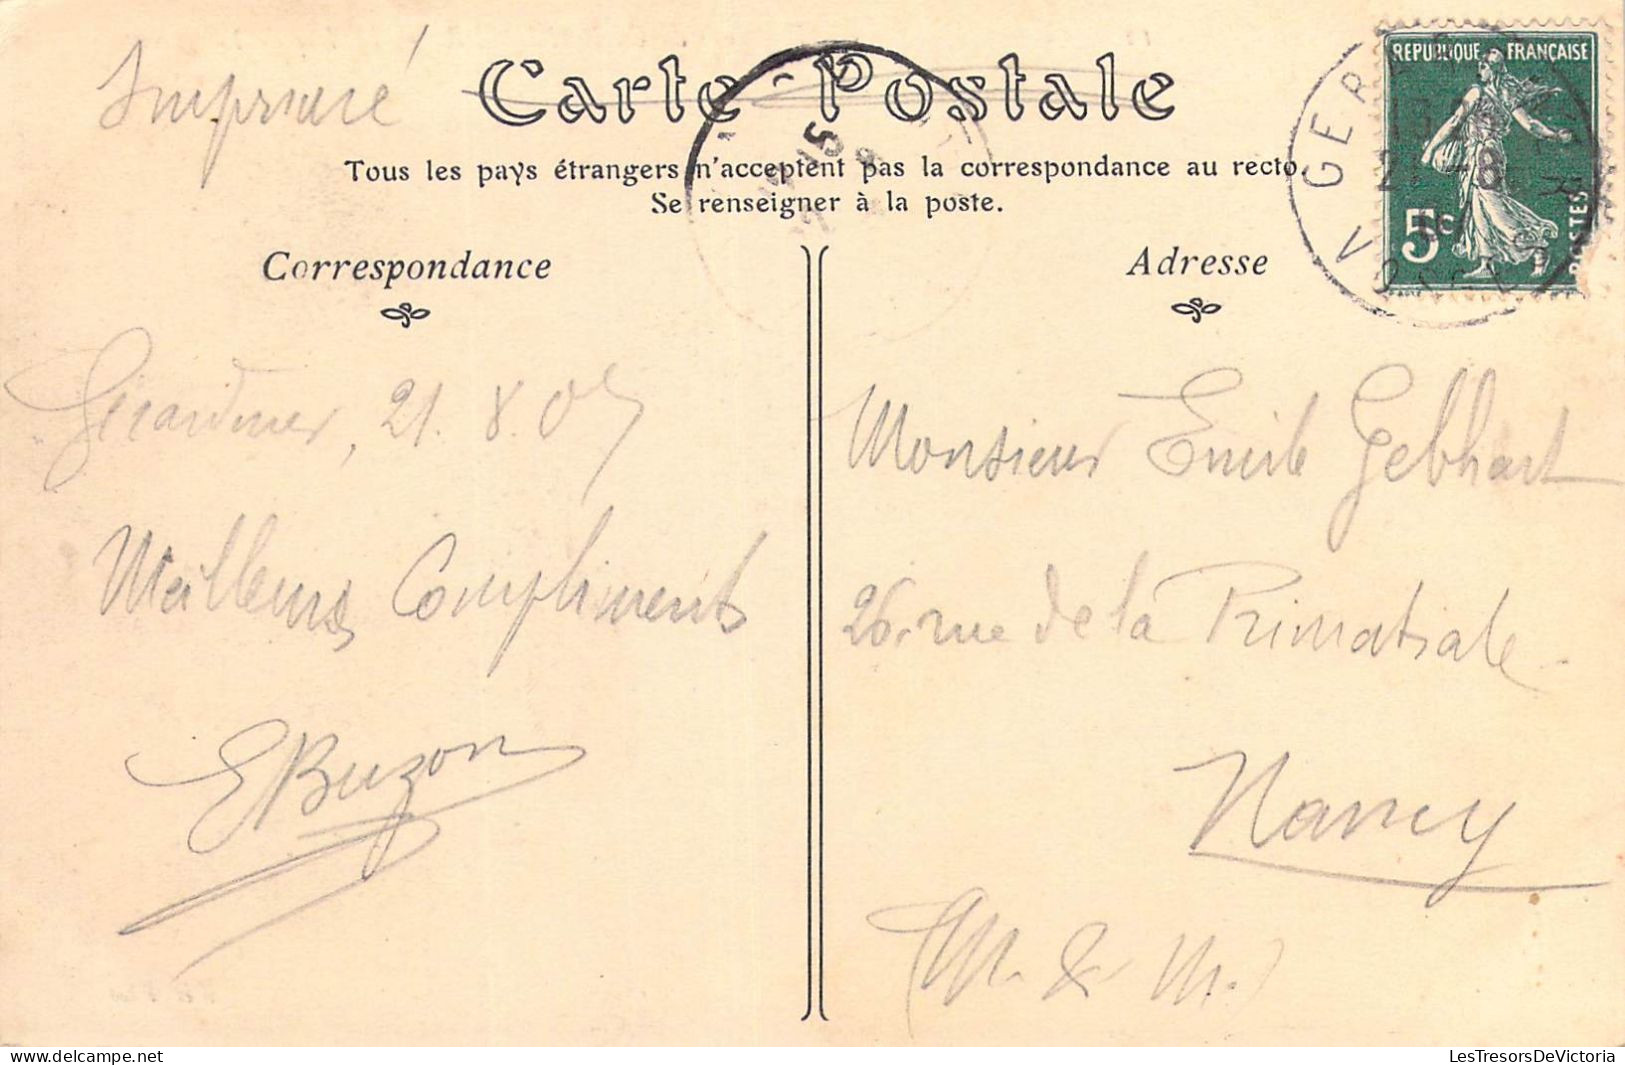 Imprimé
Carte Postale
Tous les pays étrangers n'acceptent pas la correspondance au recto.
Se renseigner à la poste.
REPUBLIQUE FRANÇAISE
5c
POSTES
GER
VOSGES
Correspondance
Adresse
Gérardmer, 21. 8. 07
Meilleurs Compliments
EBuzon
Monsieur Emile Gebhart
26, rue de la Primatiale
Nancy
(M. & M.)
delcampe.net
LesTresorsDeVictoria